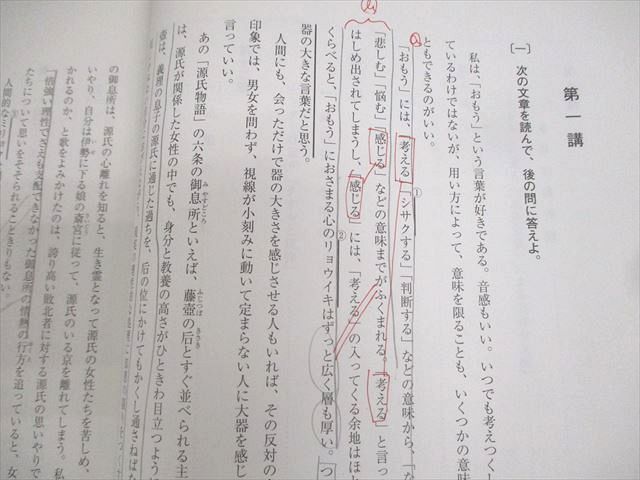 第一講
〔一〕 次の文章を読んで、後の問に答えよ。
私は、「おもう」という言葉が好きである。音感もいい。いつでも考えつくし
ているわけではないが、用い方によって、意味を限ることも、いくつかの意
ともできるのがいい。
「おもう」には、「考える」「シサクする」「判断する」などの意味から、「な
①
「悲しむ」「悩む」「感じる」などの意味までがふくまれる。「考える」と言っ
はじめ出されてしまうし、「感じる」には、「考える」の入ってくる余地はほと
くらべると、「おもう」におさまる心のリョウイキはずっと広く層も厚い。つ
②
器の大きな言葉だと思う。
人間にも、会っただけで器の大きさを感じさせる人もいれば、その反対の
印象では、男女を問わず、視線が小刻みに動いて定まらない人に大器を感じ
言っていい。
あの『源氏物語』の六条の御息所といえば、藤壺の后とすぐ並べられる主
みやすどころ
ふじつぼ
きさき
は、源氏が関係した女性の中でも、身分と教養の高さがひときわ目立つように
壺は、義理の息子の源氏に通じた過ちを、后の位にかけてもかくし通さねばな
の御息所は、源氏の心離れを知ると、生き霊となって源氏の女性たちを苦しめ、
いやり、自分は伊勢に下る娘の斎宮に従って、源氏のいる京を離れてしまう。私
いせ
さいぐう
かれるのか、と歌をよみかけたのは、誇り高い敗北者に対する源氏の思いやりで
「悟強い理性でさえも支配できなかった御息所の情熱の行方を追っていると、女
たちについて思いをそそられることきりもない。